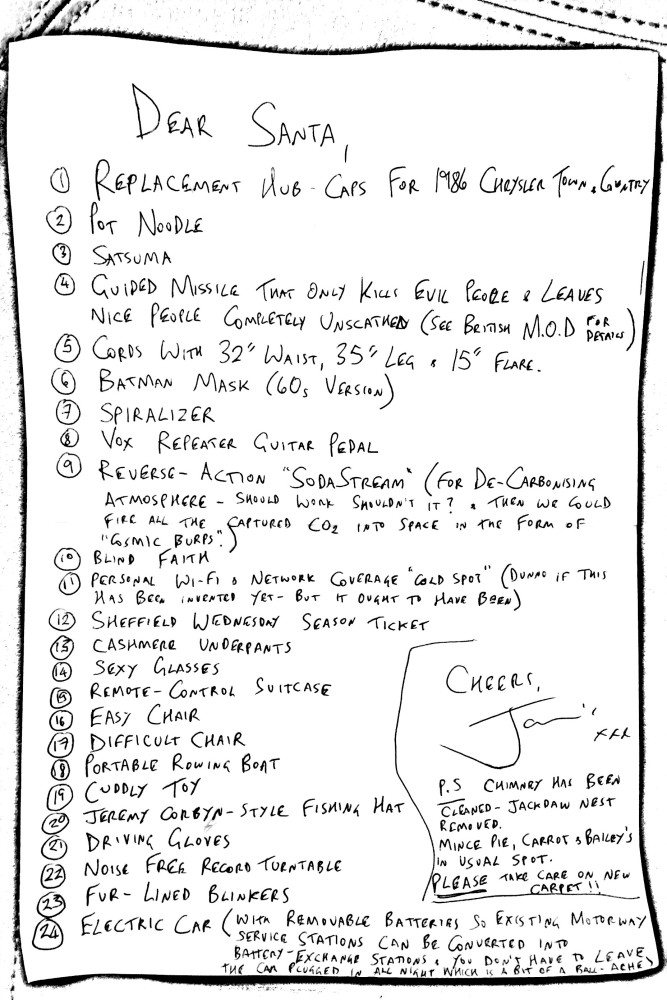 DEAR SANTA,
1 REPLACEMENT HUB-CAPS FOR 1986 CHRYSLER TOWN & COUNTRY
2 POT NOODLE
3 SATSUMA
4 GUIDED MISSILE THAT ONLY KILLS EVIL PEOPLE & LEAVES
NICE PEOPLE COMPLETELY UNSCATHED (SEE BRITISH M.O.D FOR DETAILS)
5 CORDS WITH 32" WAIST, 35" LEG & 15" FLARE.
6 BATMAN MASK (60s VERSION)
7 SPIRALIZER
8 VOX REPEATER GUITAR PEDAL
9 REVERSE-ACTION "SODASTREAM" (FOR DE-CARBONISING
ATMOSPHERE - SHOULD WORK SHOULDN'T IT? & THEN WE COULD
FIRE ALL THE CAPTURED CO2 INTO SPACE IN THE FORM OF
"COSMIC BURPS".)
10 BLIND FAITH
11 PERSONAL WI-FI & NETWORK COVERAGE "COLD SPOT" (DUNNO IF THIS
HAS BEEN INVENTED YET - BUT IT OUGHT TO HAVE BEEN)
12 SHEFFIELD WEDNESDAY SEASON TICKET
13 CASHMERE UNDERPANTS
14 SEXY GLASSES
15 REMOTE-CONTROL SUITCASE
16 EASY CHAIR
17 DIFFICULT CHAIR
18 PORTABLE ROWING BOAT
19 CUDDLY TOY
20 JEREMY CORBYN-STYLE FISHING HAT
21 DRIVING GLOVES
22 NOISE FREE RECORD TURNTABLE
23 FUR-LINED BLINKERS
24 ELECTRIC CAR (WITH REMOVABLE BATTERIES SO EXISTING MOTORWAY
SERVICE STATIONS CAN BE CONVERTED INTO
BATTERY-EXCHANGE STATIONS & YOU DON'T HAVE TO LEAVE
THE CAR PLUGGED IN ALL NIGHT WHICH IS A BIT OF A BALL-ACHE)
CHEERS,
Jarvis
xxx
P.S CHIMNEY HAS BEEN
CLEANED - JACKDAW NEST
REMOVED.
MINCE PIE, CARROT & BAILEY'S
IN USUAL SPOT.
PLEASE TAKE CARE ON NEW
CARPET!!